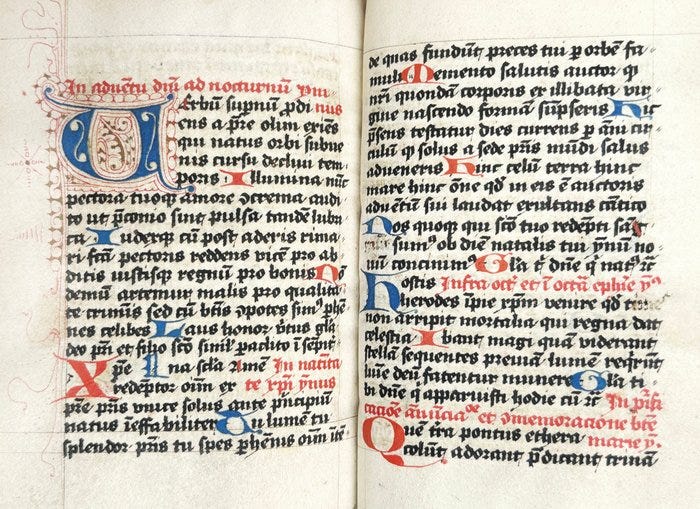 In adventu dni ad nocturnu ym
Verbu supnu pdi nus
ens a pre olim exies
qui natus orbi subue
nis cursu declivi tem
poris Illumina nuc
pectora tuoq amore ocrema audi
to ut pconio sint pulsa tande lubri
ca Iudexq cu post aderis rima
ri fca pectoris reddens vice pro ab
ditis iustisq regnu pro bonis No
demu artemur malis pro qualita
te crimis sed cu btis opotes sim phe
nes celibes Laus honor vtus gla
deo pri et filio sco simul paclito i sepit
na scla Amen In natita
Xpe redeptor oim ex te xpi ymus
pre pris unice solus ante pncipiu
natus ieffabiliter Tu lumen tu
splendor pris tu spes phenis oim ite
de quas fundut preces tui p orbem fa
muli Memento salutis auctor q
nri quondam corporis ex illibata vir
gine nascendo formam supseris Hic
psens testatur dies currens p ani cir
culu q solus a sede pris mudi salus
adveneris Hunc celu terra hunc
mare hunc one qd in eis e auctore
adventu sui laudat exultans cantico
Nos quoq qui sco tuo redepti sag
sum ob diem natalis tui ymnu no
uu concinim Gla t dne q nat es
Infra oct et i octa ephie y
Hostis herodes ipie xpm venire qd times
non arripit mortalia qui regna dat
celestia Ibant magi qua viderant
stella sequentes previam lume requrut
lumie deu fatentur munere Gla ti
bi dne q apparuisti hodie cu
In purifi
catioe anuciacoe et omemoracione bte
marie y
Que tra pontus ethera
colut adorant pdicant trina